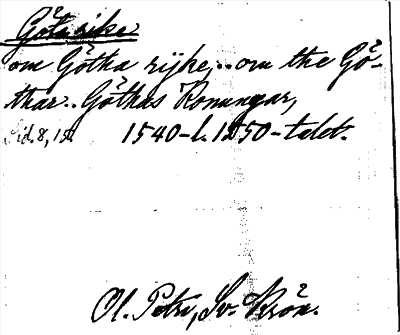 Götarike
om Götha rijke, .. om the Gö-
thar.. Göthes Konungar,
Sid. 8, 12. 1540-t. 1550-talet.
Ol. Petri, Sv. Krön.